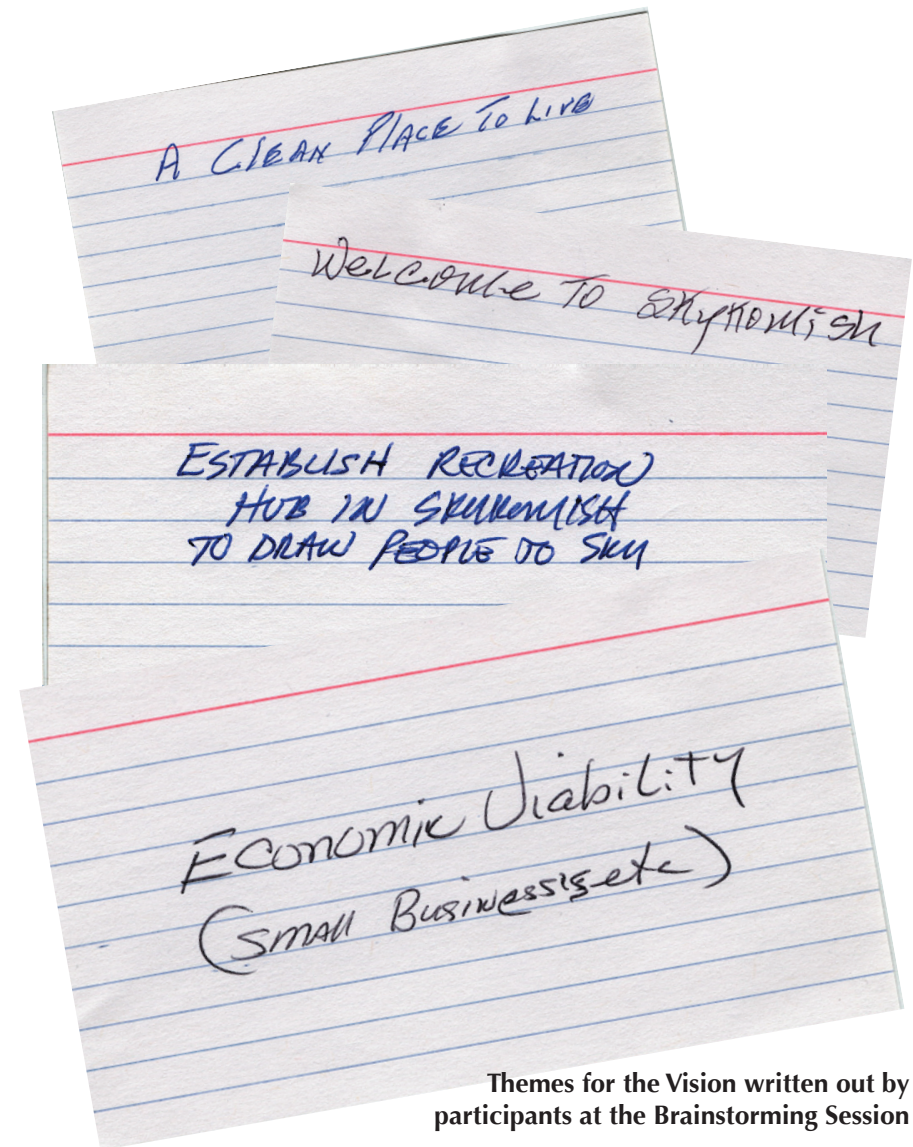 A Clean Place To Live
Welcome To Skykomish
ESTABLISH RECREATION
HUB IN SKYKOMISH
TO DRAW PEOPLE TO SKY
Economic Viability
(Small Businessis-etc)
Themes for the Vision written out by
participants at the Brainstorming Session